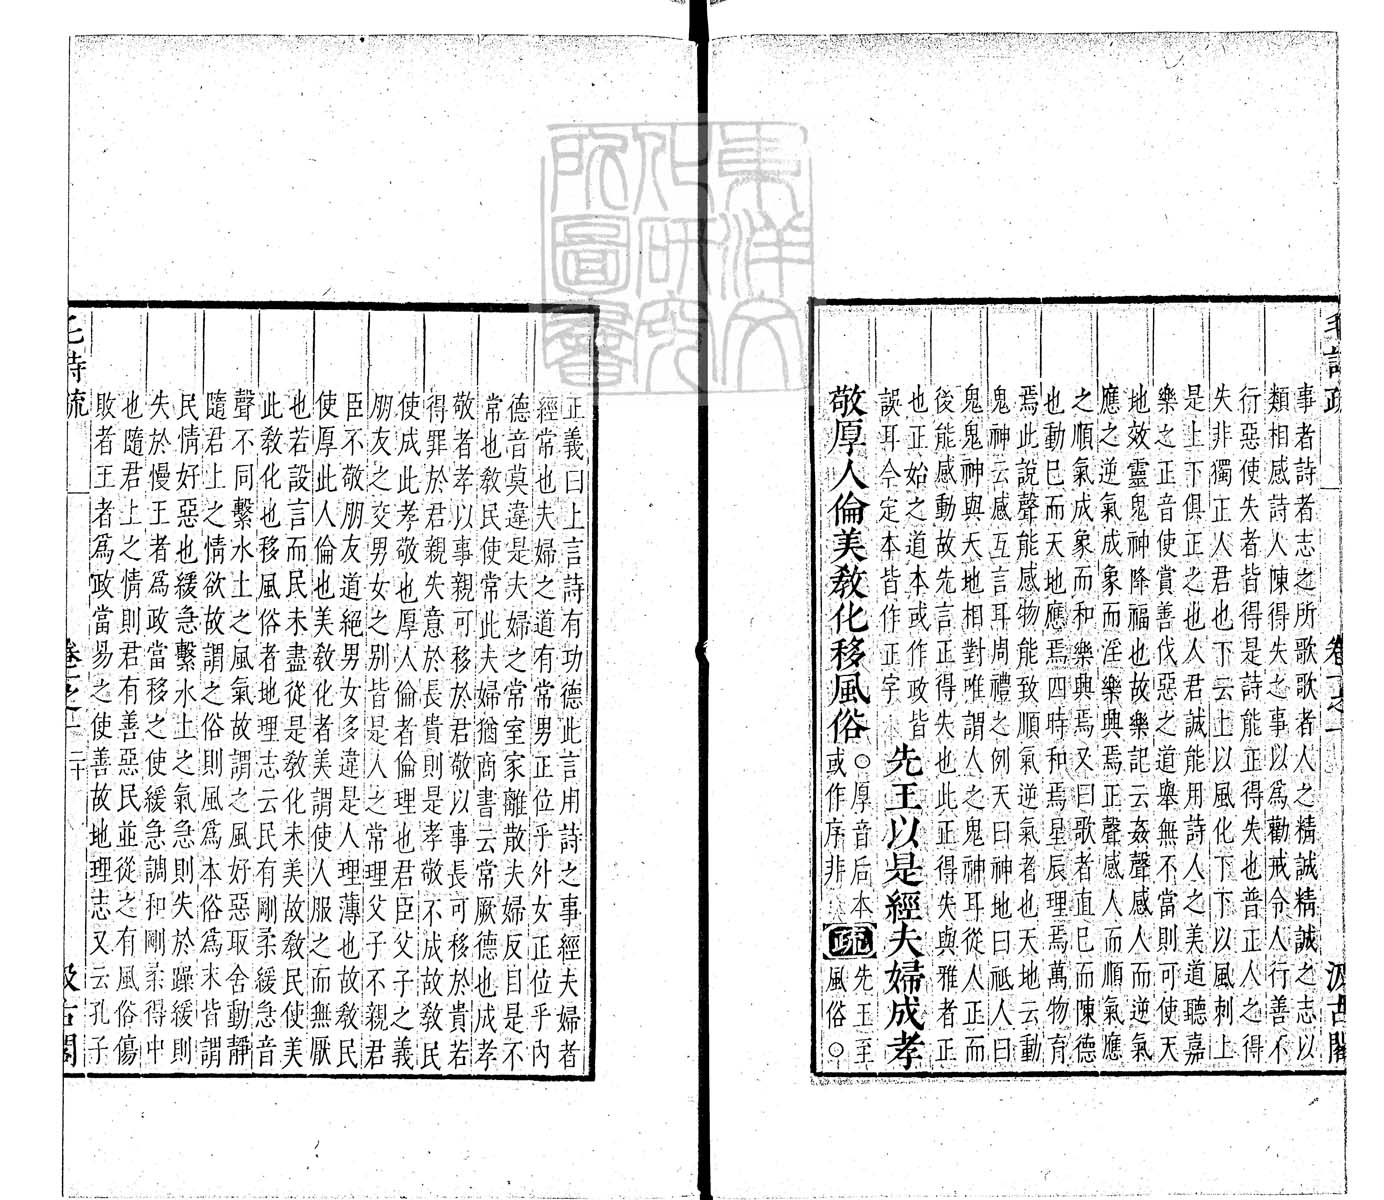 毛詩疏 卷一之一 汲古閣
事者詩者志之所歌歌者人之精誠精誠之志以
類相感詩人陳得失之事以爲勸戒令人行善不
行惡使失者皆得是詩能正得失也普正人之得
失非獨正人君也下云上以風化下下以風刺上
是上下俱正之也人君誠能用詩人之美道聽嘉
樂之正音使賞善伐惡之道舉無不當則可使天
地效靈鬼神降福也故樂記云姦聲感人而逆氣
應之逆氣成象而淫樂興焉正聲感人而順氣應
之順氣成象而和樂興焉又曰歌者直巳而陳德
也動巳而天地應焉四時和焉星辰理焉萬物育
焉此說聲能感物能致順氣逆氣者也天地云動
鬼神云感互言耳周禮之例天曰神地曰祗人曰
鬼鬼神與天地相對唯謂人之鬼神耳從人正而
後能感動故先言正得失也此正得失與雅者正
也正始之道本或作政皆
誤耳今定本皆作正字
先王以是經夫婦成孝
敬厚人倫美敎化移風俗
○厚音后本
或作序非
疏
先王至
風俗○
正義曰上言詩有功德此言用詩之事經夫婦者
經常也夫婦之道有常男正位乎外女正位乎内
德音莫違是夫婦之常室家離散夫婦反目是不
常也敎民使常此夫婦猶商書云常厥德也成孝
敬者孝以事親可移於君敬以事長可移於貴若
得罪於君親失意於長貴則是孝敬不成故敎民
使成此孝敬也厚人倫者倫理也君臣父子之義
朋友之交男女之别皆是人之常理父子不親君
臣不敬朋友道絕男女多違是人理薄也故敎民
使厚此人倫也美敎化者美謂使人服之而無厭
也若設言而民未盡從是敎化未美故敎民使美
此敎化也移風俗者地理志云民有剛柔緩急音
聲不同繫水土之風氣故謂之風好惡取舍動靜
隨君上之情欲故謂之俗則風爲本俗爲末皆謂
民情好惡也緩急繫水土之氣急則失於躁緩則
失於慢王者爲政當移之使緩急調和剛柔得中
也隨君上之情則君有善惡民並從之有風俗傷
敗者王者爲政當易之使善故地理志又云孔子
毛詩疏 卷一之一 二十 汲古閣
東洋文
化研究
所圖書